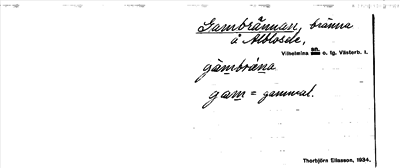 Gambrännan, bränna
å Alblosele,
Vilhelmina sn. o. tg. Västerb. l.
gàmbrǻna
gam = gammal.
Thorbjörn Eliasson, 1934.